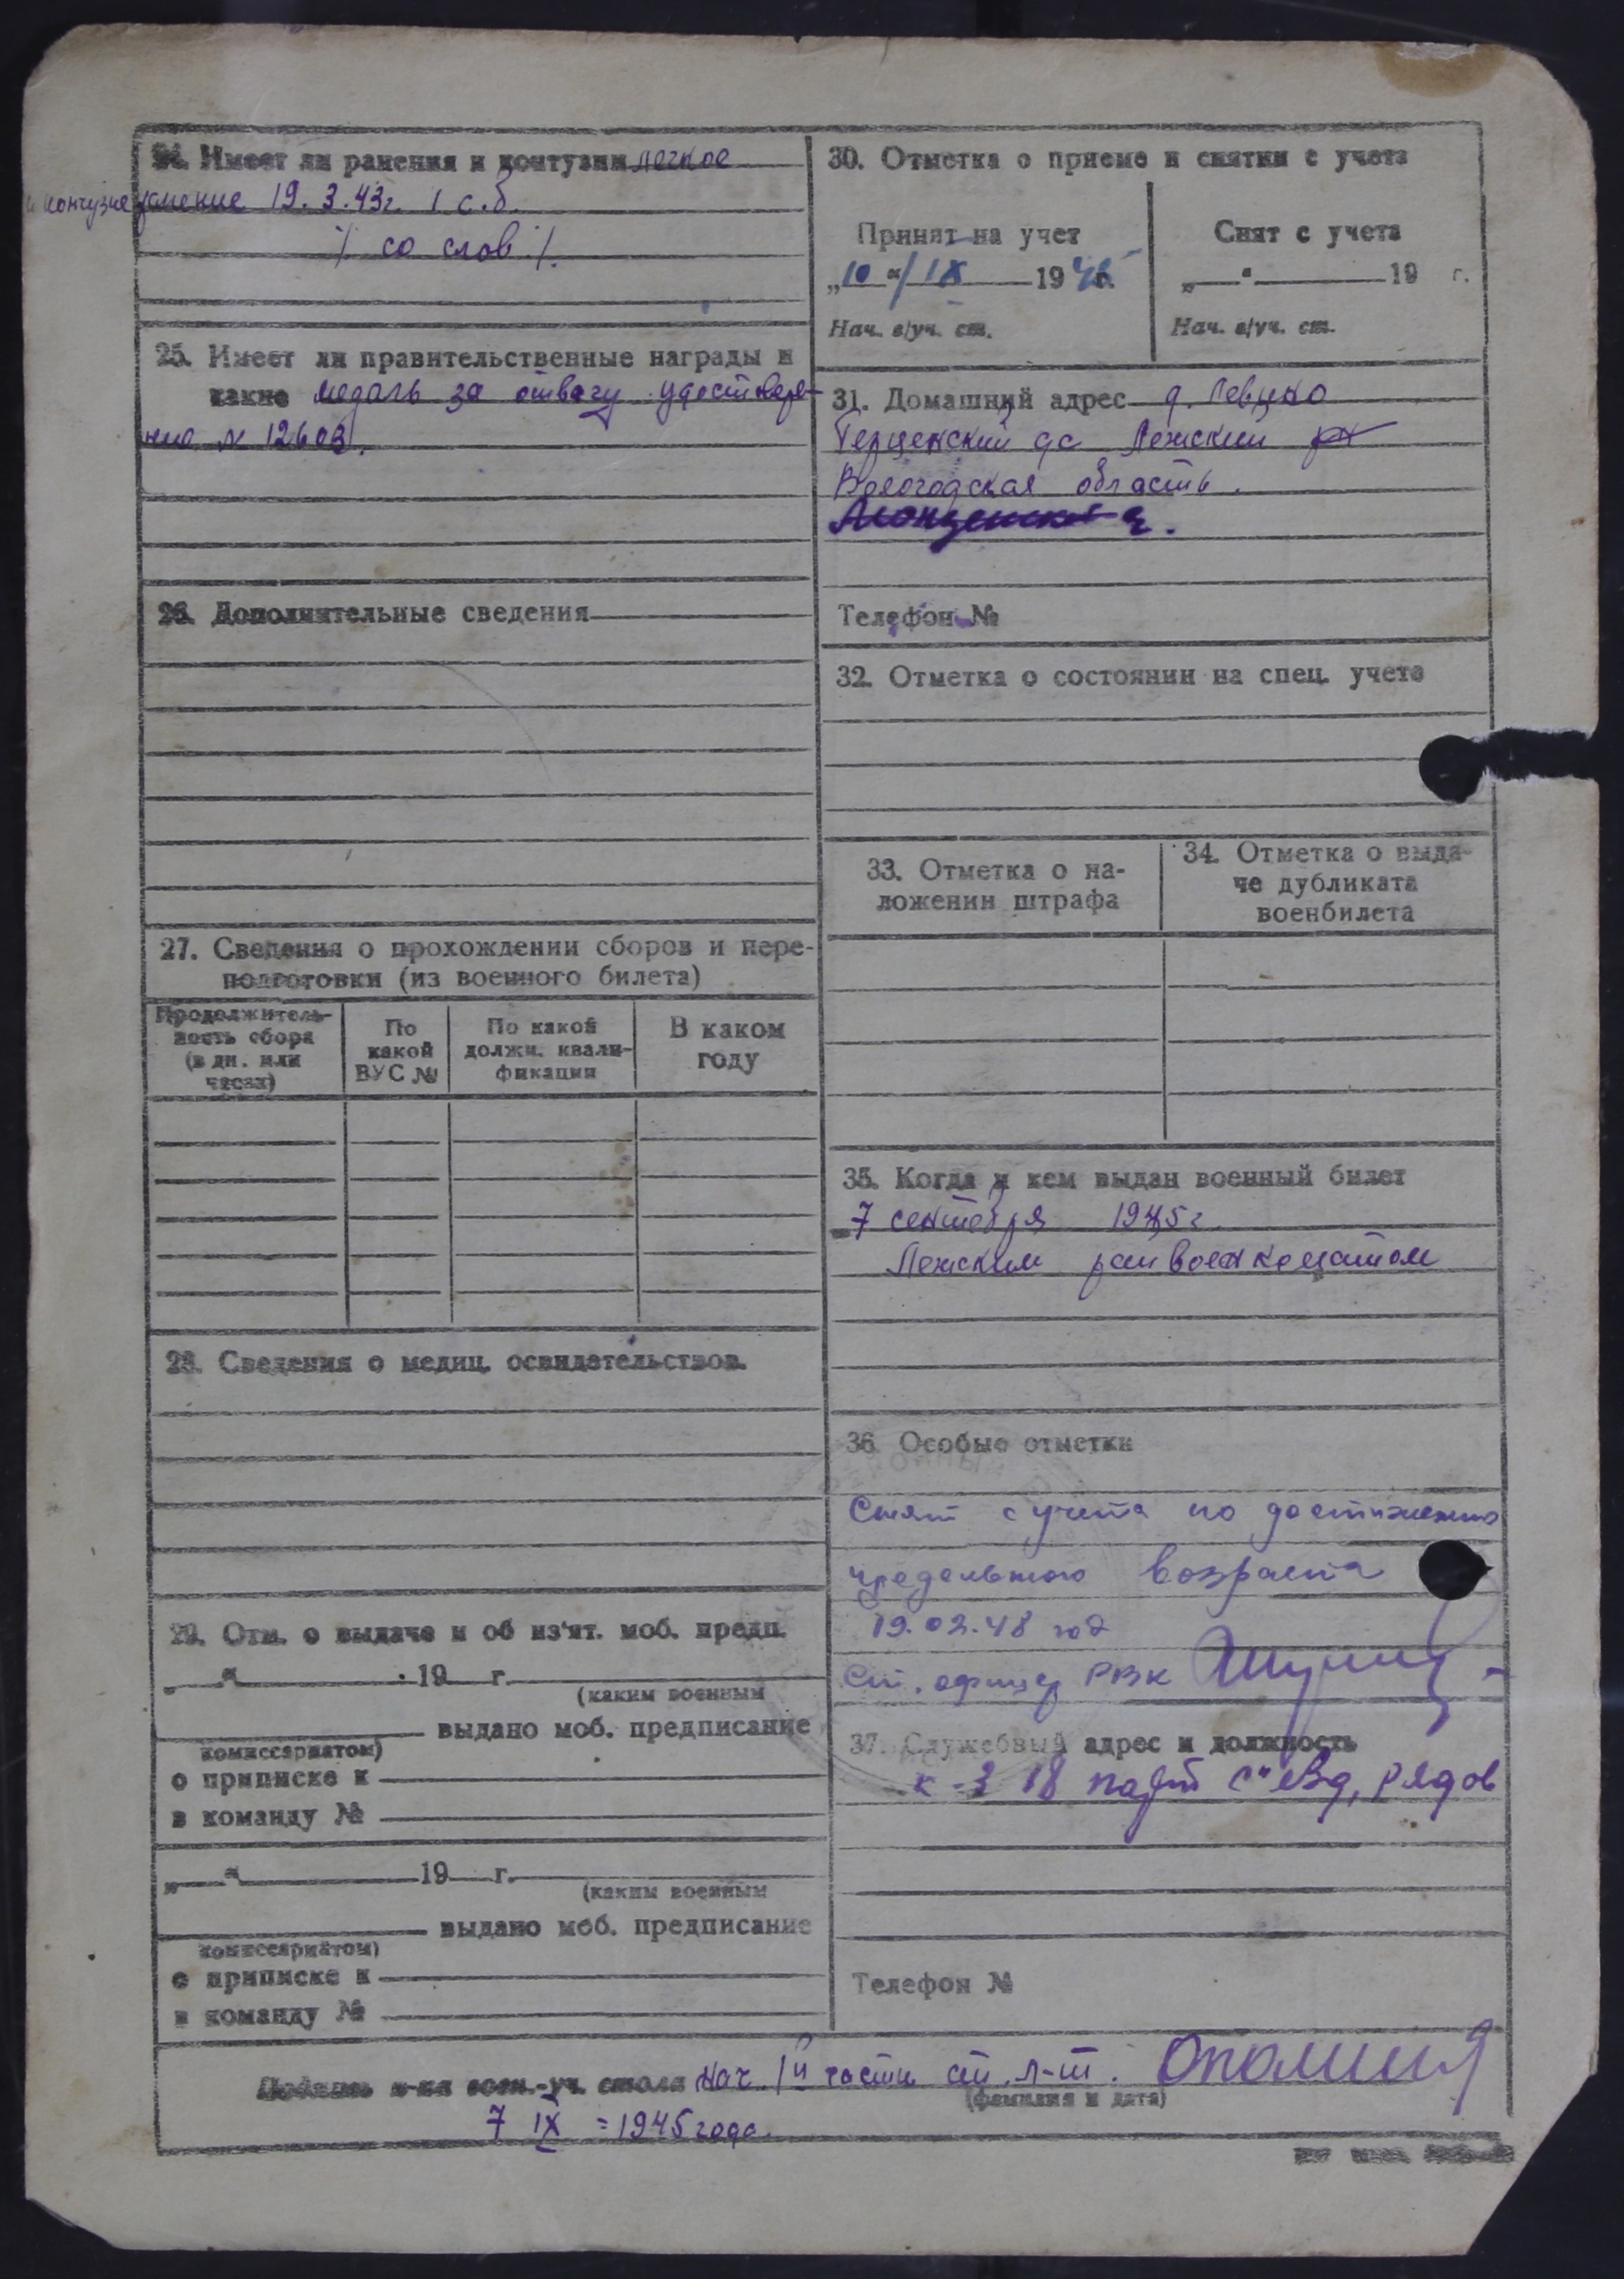 24. Имеет ли ранения и контузии легкое
и контузие ранение 19.3.43г. 1 с.б.
/ со слов /.
25. Имеет ли правительственные награды и
какие медаль за отвагу удостовере-
ние N 12603.
26. Дополнительные сведения
27. Сведения о прохождении сборов и пере-
подготовки (из военного билета)
Продолжитель-
ность сбора
(в дн. или
часах)
По
какой
ВУС №
По какой
должн. квали-
фикации
В каком
году
28. Сведения о медиц. освидетельствов.
29. Отм. о выдаче и об из'ят. моб. предп.
„ “ 19 г.
(каким военным
выдано моб. предписание
комиссариатом)
о приписке к
в команду №
„ “ 19 г.
(каким военным
выдано моб. предписание
комиссариатом)
о приписке к
в команду №
30. Отметка о приеме и снятии с учета
Принят на учет
„10“ IX 1945 г.
Нач. в/уч. ст.
Снят с учета
„ “ 19 г.
Нач. в/уч. ст.
31. Домашний адрес д.
Лежский рн
Вологодская область.
Телефон №
32. Отметка о состоянии на спец. учете
33. Отметка о на-
ложении штрафа
34. Отметка о выда-
че дубликата
военбилета
35. Когда и кем выдан военный билет
7 сентября 1945г.
Лежским райвоенкоматом
36. Особые отметки
Снят с учета по достижению
предельного возраста
19.02.48 год
Ст. офицер РВК
37. Служебный адрес и должность
к-з 18 парт с"езд, рядов
Телефон №
Подпись н-ка воен.-уч. стола нач 1й части ст. л-т.
(фамилия и дата)
7 IX = 1945 года.